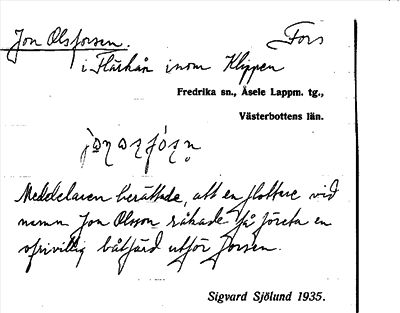 Jon Olsforsen. Fors
i Flärkån inom Klippen
Fredrika sn., Åsele Lappm. tg.,
Västerbottens län.
Meddelaren berättade, att en flottare vid
namn Jon Olsson råkade få företa en
ofrivillig båtfärd utför forsen.
Sigvard Sjölund 1935.